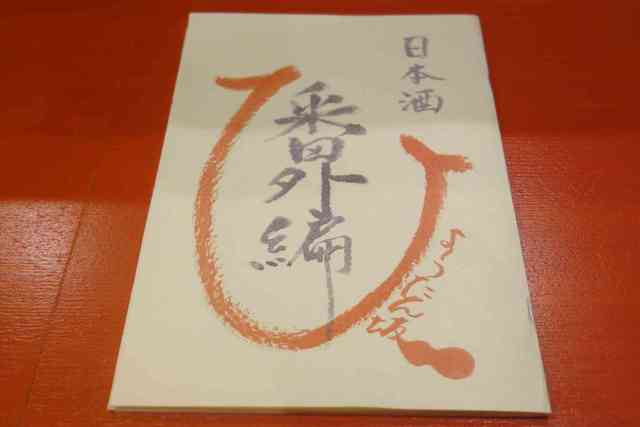 日本酒
番外編
ひょうたん坂